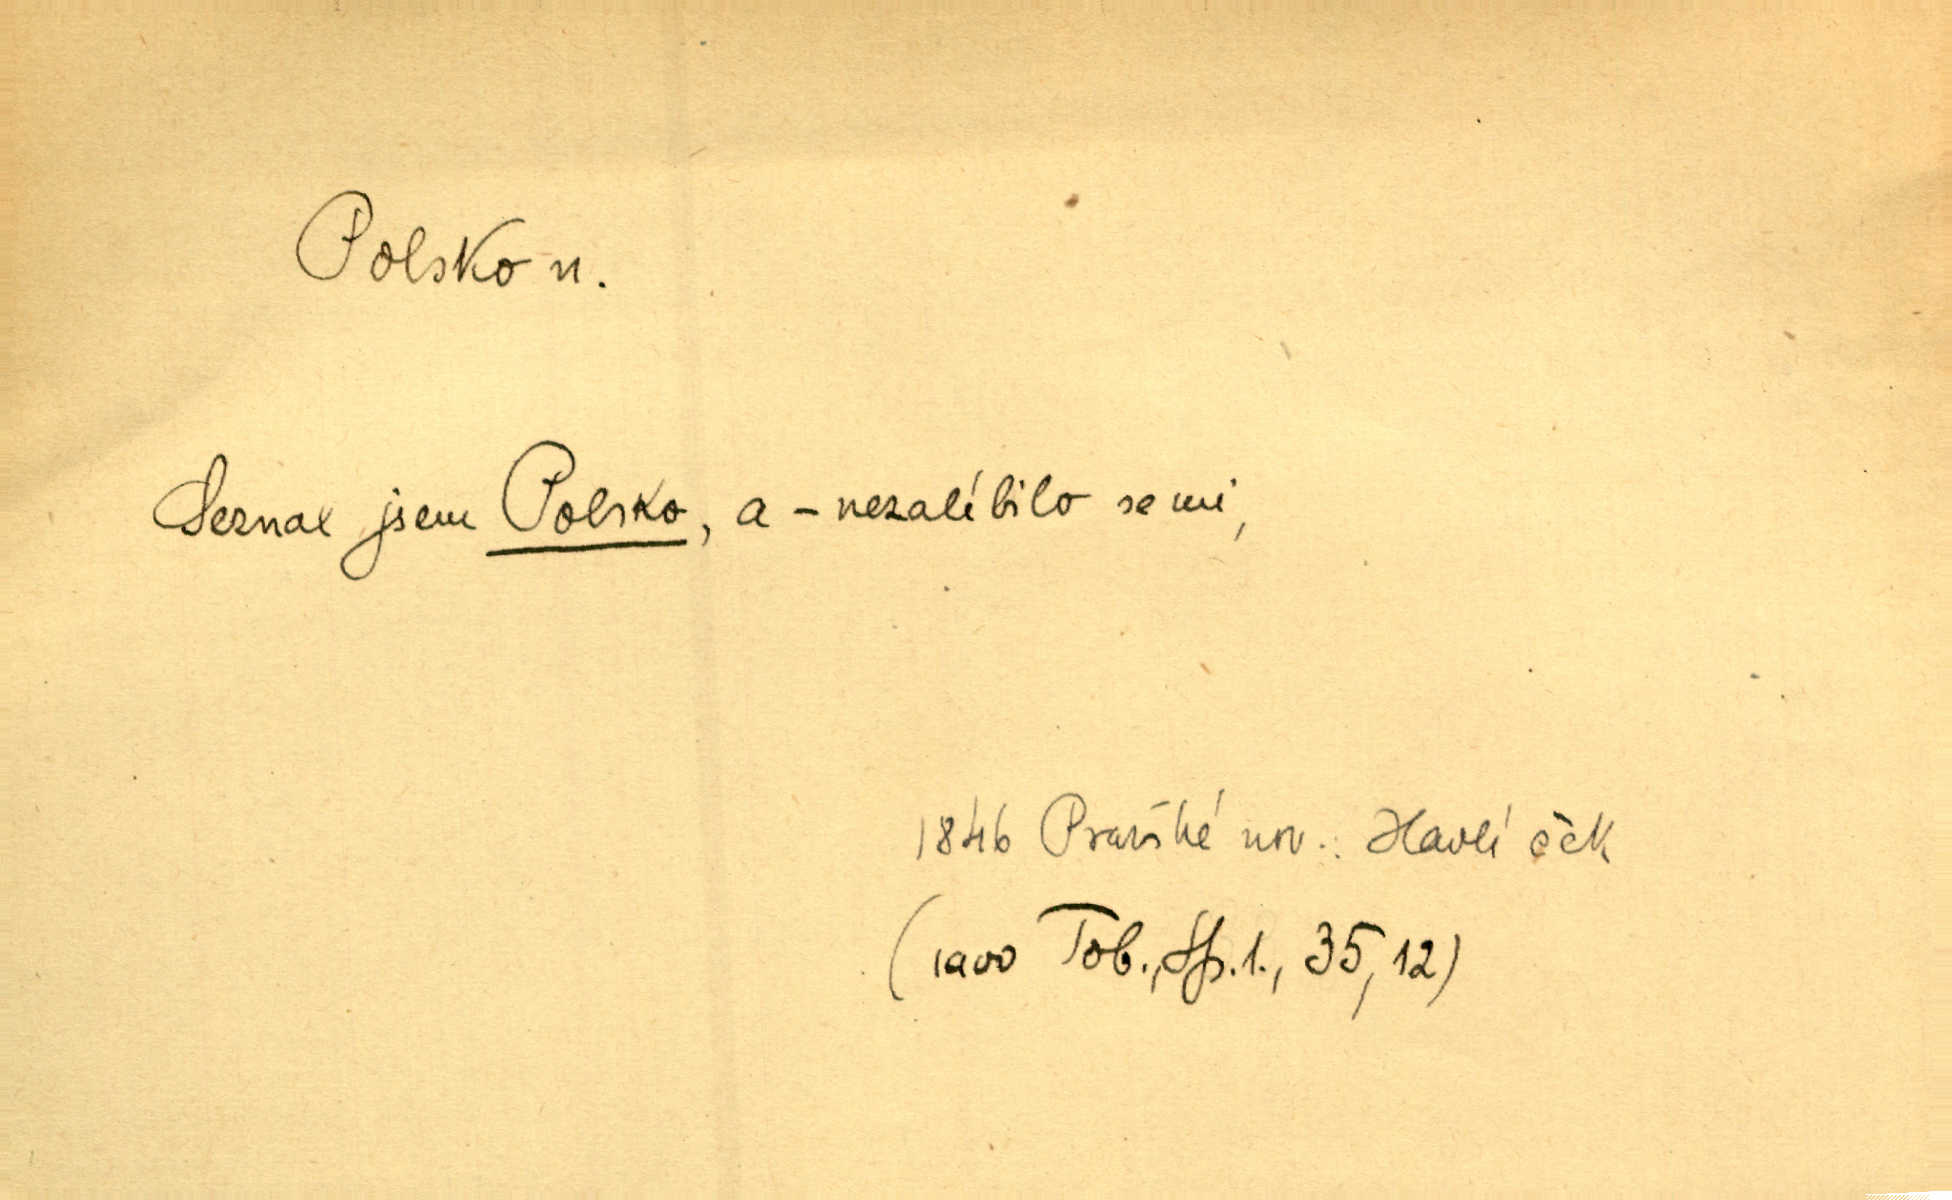 Polsko n.
Seznal jsem Polsko, a – nezalíbilo se mi,
1846 Pražské nov.: Havlíček
Tob., Sp. 1., 35, 12)